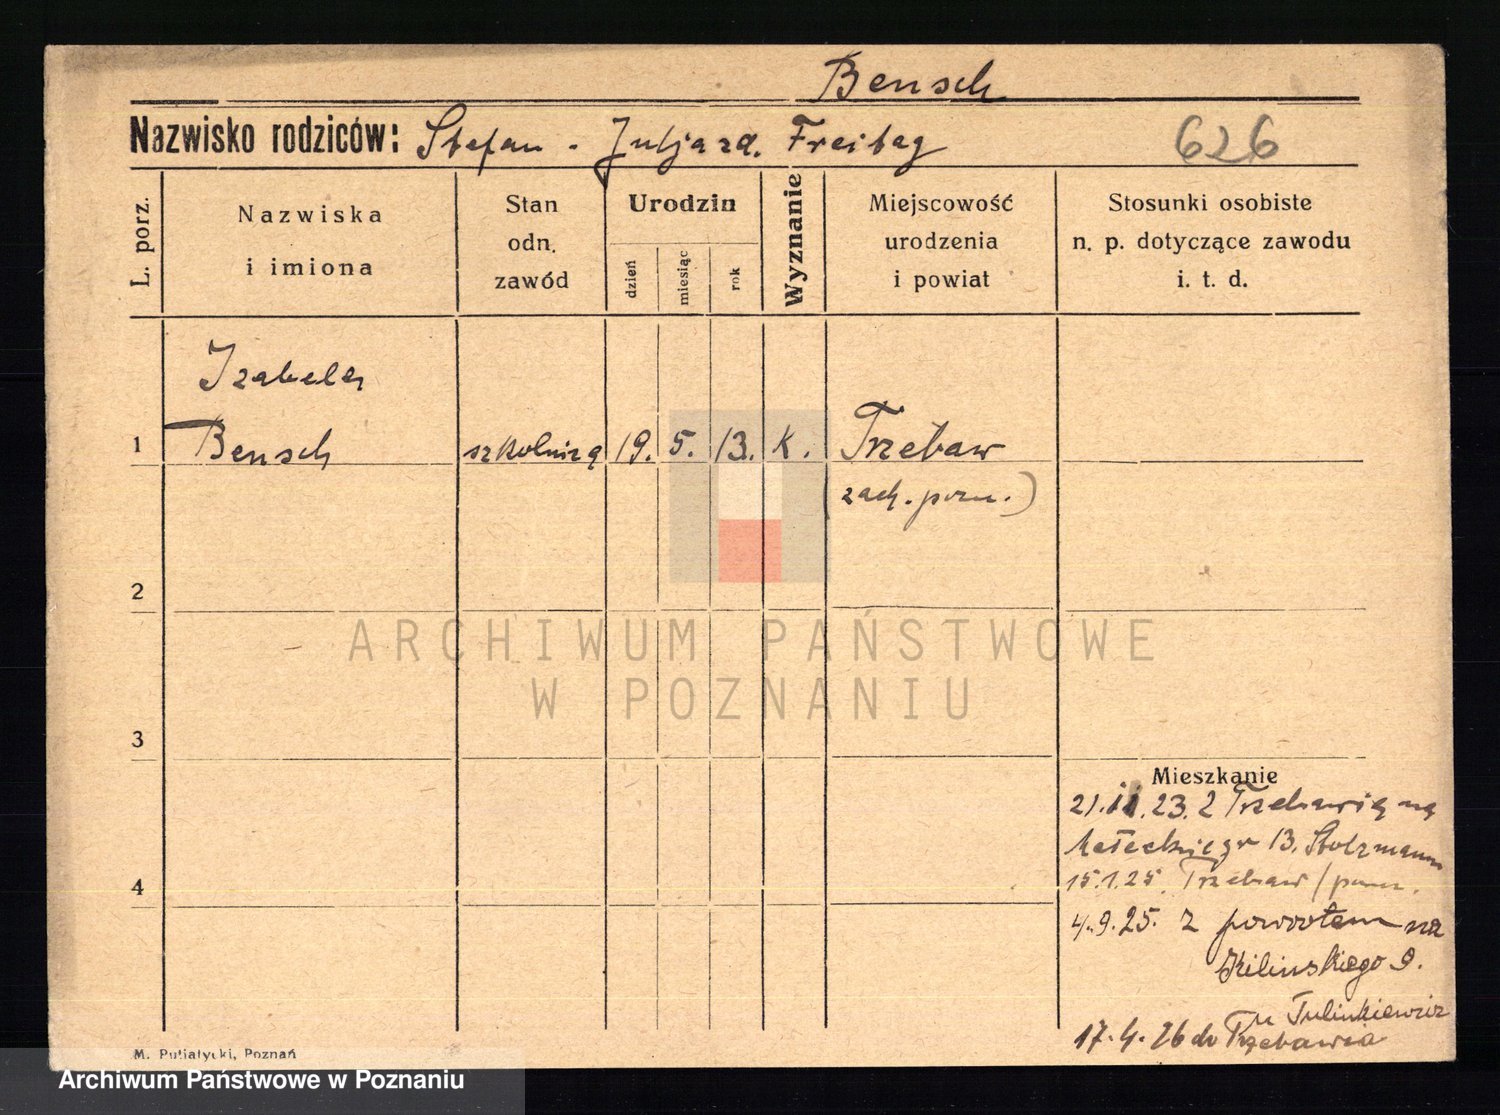 Bensch
Nazwisko rodziców: Stefan - Julja zd. Freitag 626
L. porz.
Nazwiska
i imiona
Stan
odn.
zawód
Urodzin
dzień
miesiąc
rok
Wyznanie
Miejscowość
urodzenia
i powiat
Stosunki osobiste
n. p. dotyczące zawodu
i. t. d.
Izabela
1 Bensch 19. 5. 13. k. Trzebaw
(zach. pozn.)
2
ARCHIWUM PAŃSTWOWE
W POZNANIU
3
Mieszkanie
21.11.23. z Trzebawia na
13. Stolzmann
4
15.1.25. Trzebaw / pozn.
4.9.25. z powrotem na
Kilińskiego 9.
u Tulinkiewicz
17.4.26 do Trzebawia
M. Putiatycki, Poznań
Archiwum Państwowe w Poznaniu